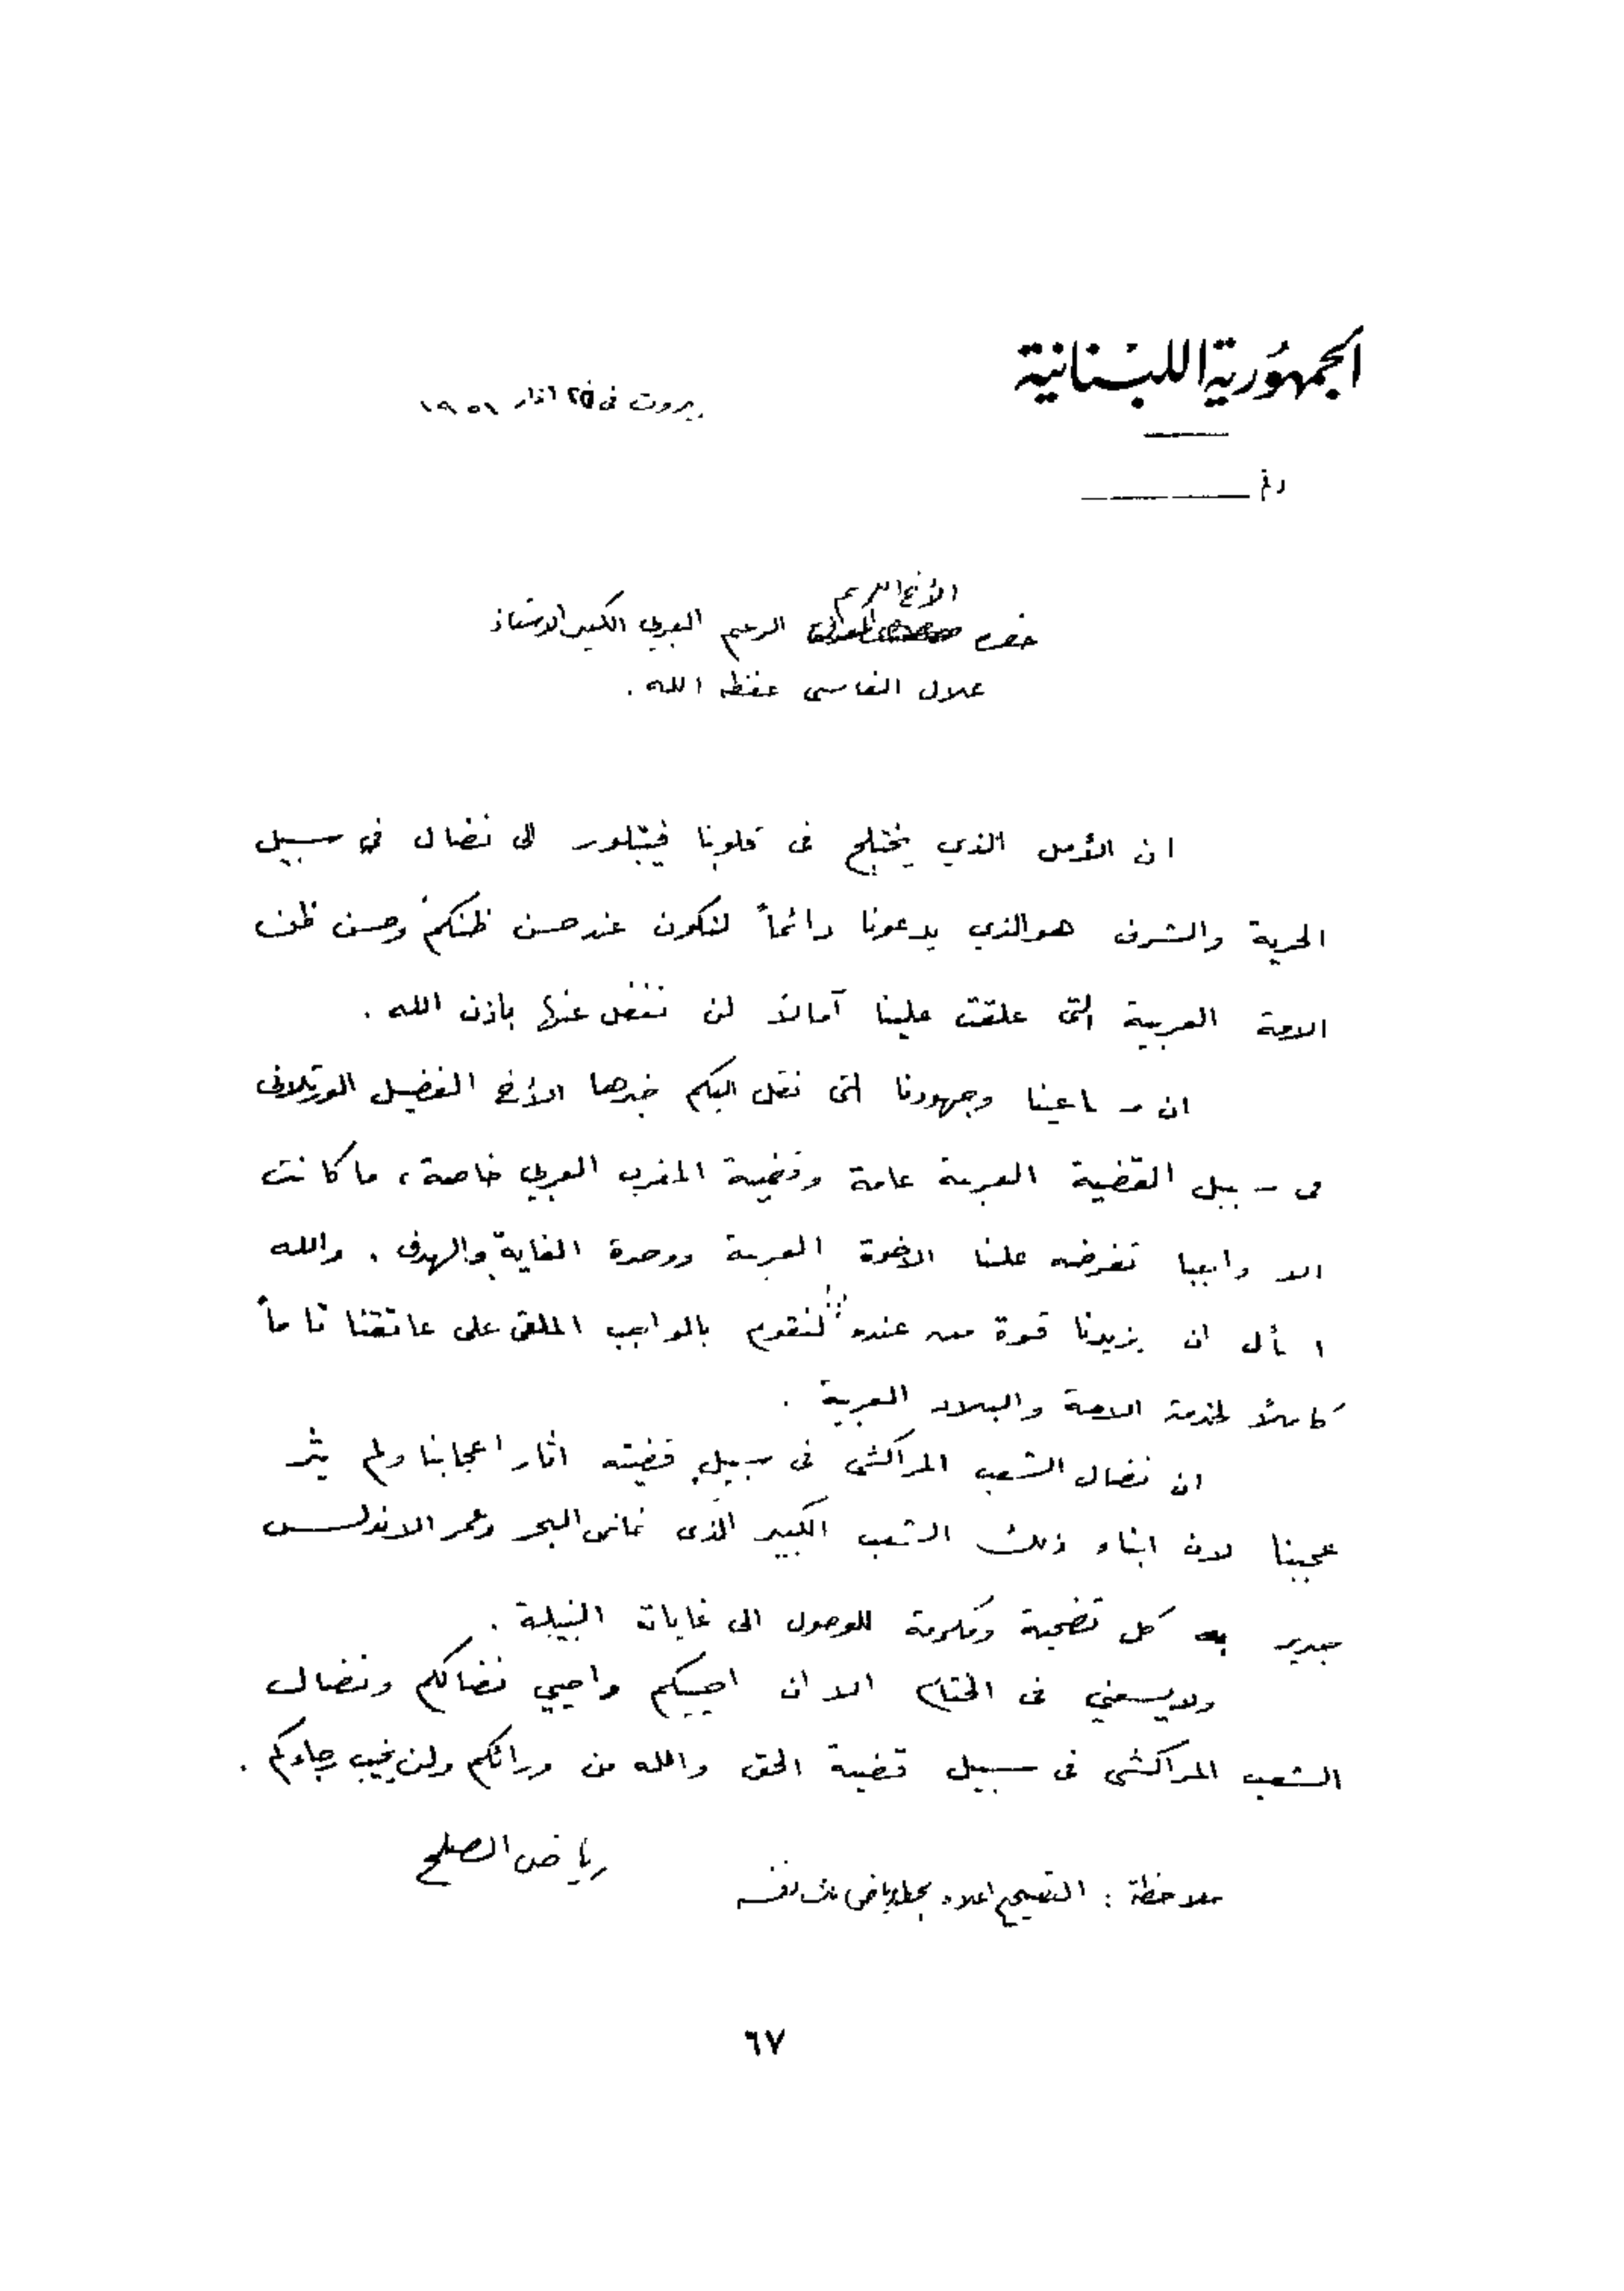 الجمهورية اللبنانية
بيروت في ٢٥ اذار ١٩٥١
رقم
الأخ الكريم
حضرة الزعيم العربي الكبير الاستاذ
علال الفاسي حفظه الله .
ان الأمل الذي يختلج في قلوبنا فيتبلور الى نضال في سبيل
الحرية والشرف هو الذي يدعونا دائماً لنكون عند حسن ظنكم وحسن ظن
الامة العربية التي علقت علينا آمالاً لن نغفل عنها باذن الله .
ان مساعينا وجهودنا التي نقل اليكم خبرها الأخ الفضيل الورتلاني
في سبيل القضية العربية عامة وقضية المغرب العربي خاصة ، ما كانت
الا واجبا تفرضه علينا الاخوة العربية ووحدة الغاية والهدف . والله
اسأل ان يزيدنا قوة من عنده لنقوم بالواجب الملقى على عاتقنا تاماً
كاملاً لخدمة الامة والبلاد العربية .
ان نضال الشعب المراكشي في سبيل قضيته اثار اعجابنا ولم يثر
عجبنا لان ابناء ذلك الشعب الكبير الذي خاض البحر وعمر الاندلس
جدير به كل تضحية ومكرمة للوصول الى غاياته النبيلة .
ولا يسعني في الختام الا ان احييكم واحيي نضالكم ونضال
الشعب المراكشي في سبيل قضية الحق والله من ورائكم ولن يخيب رجاؤكم .
رياض الصلح
ملاحظة : التصحيح اعلاه بخط رياض بك نفسه
٦٧